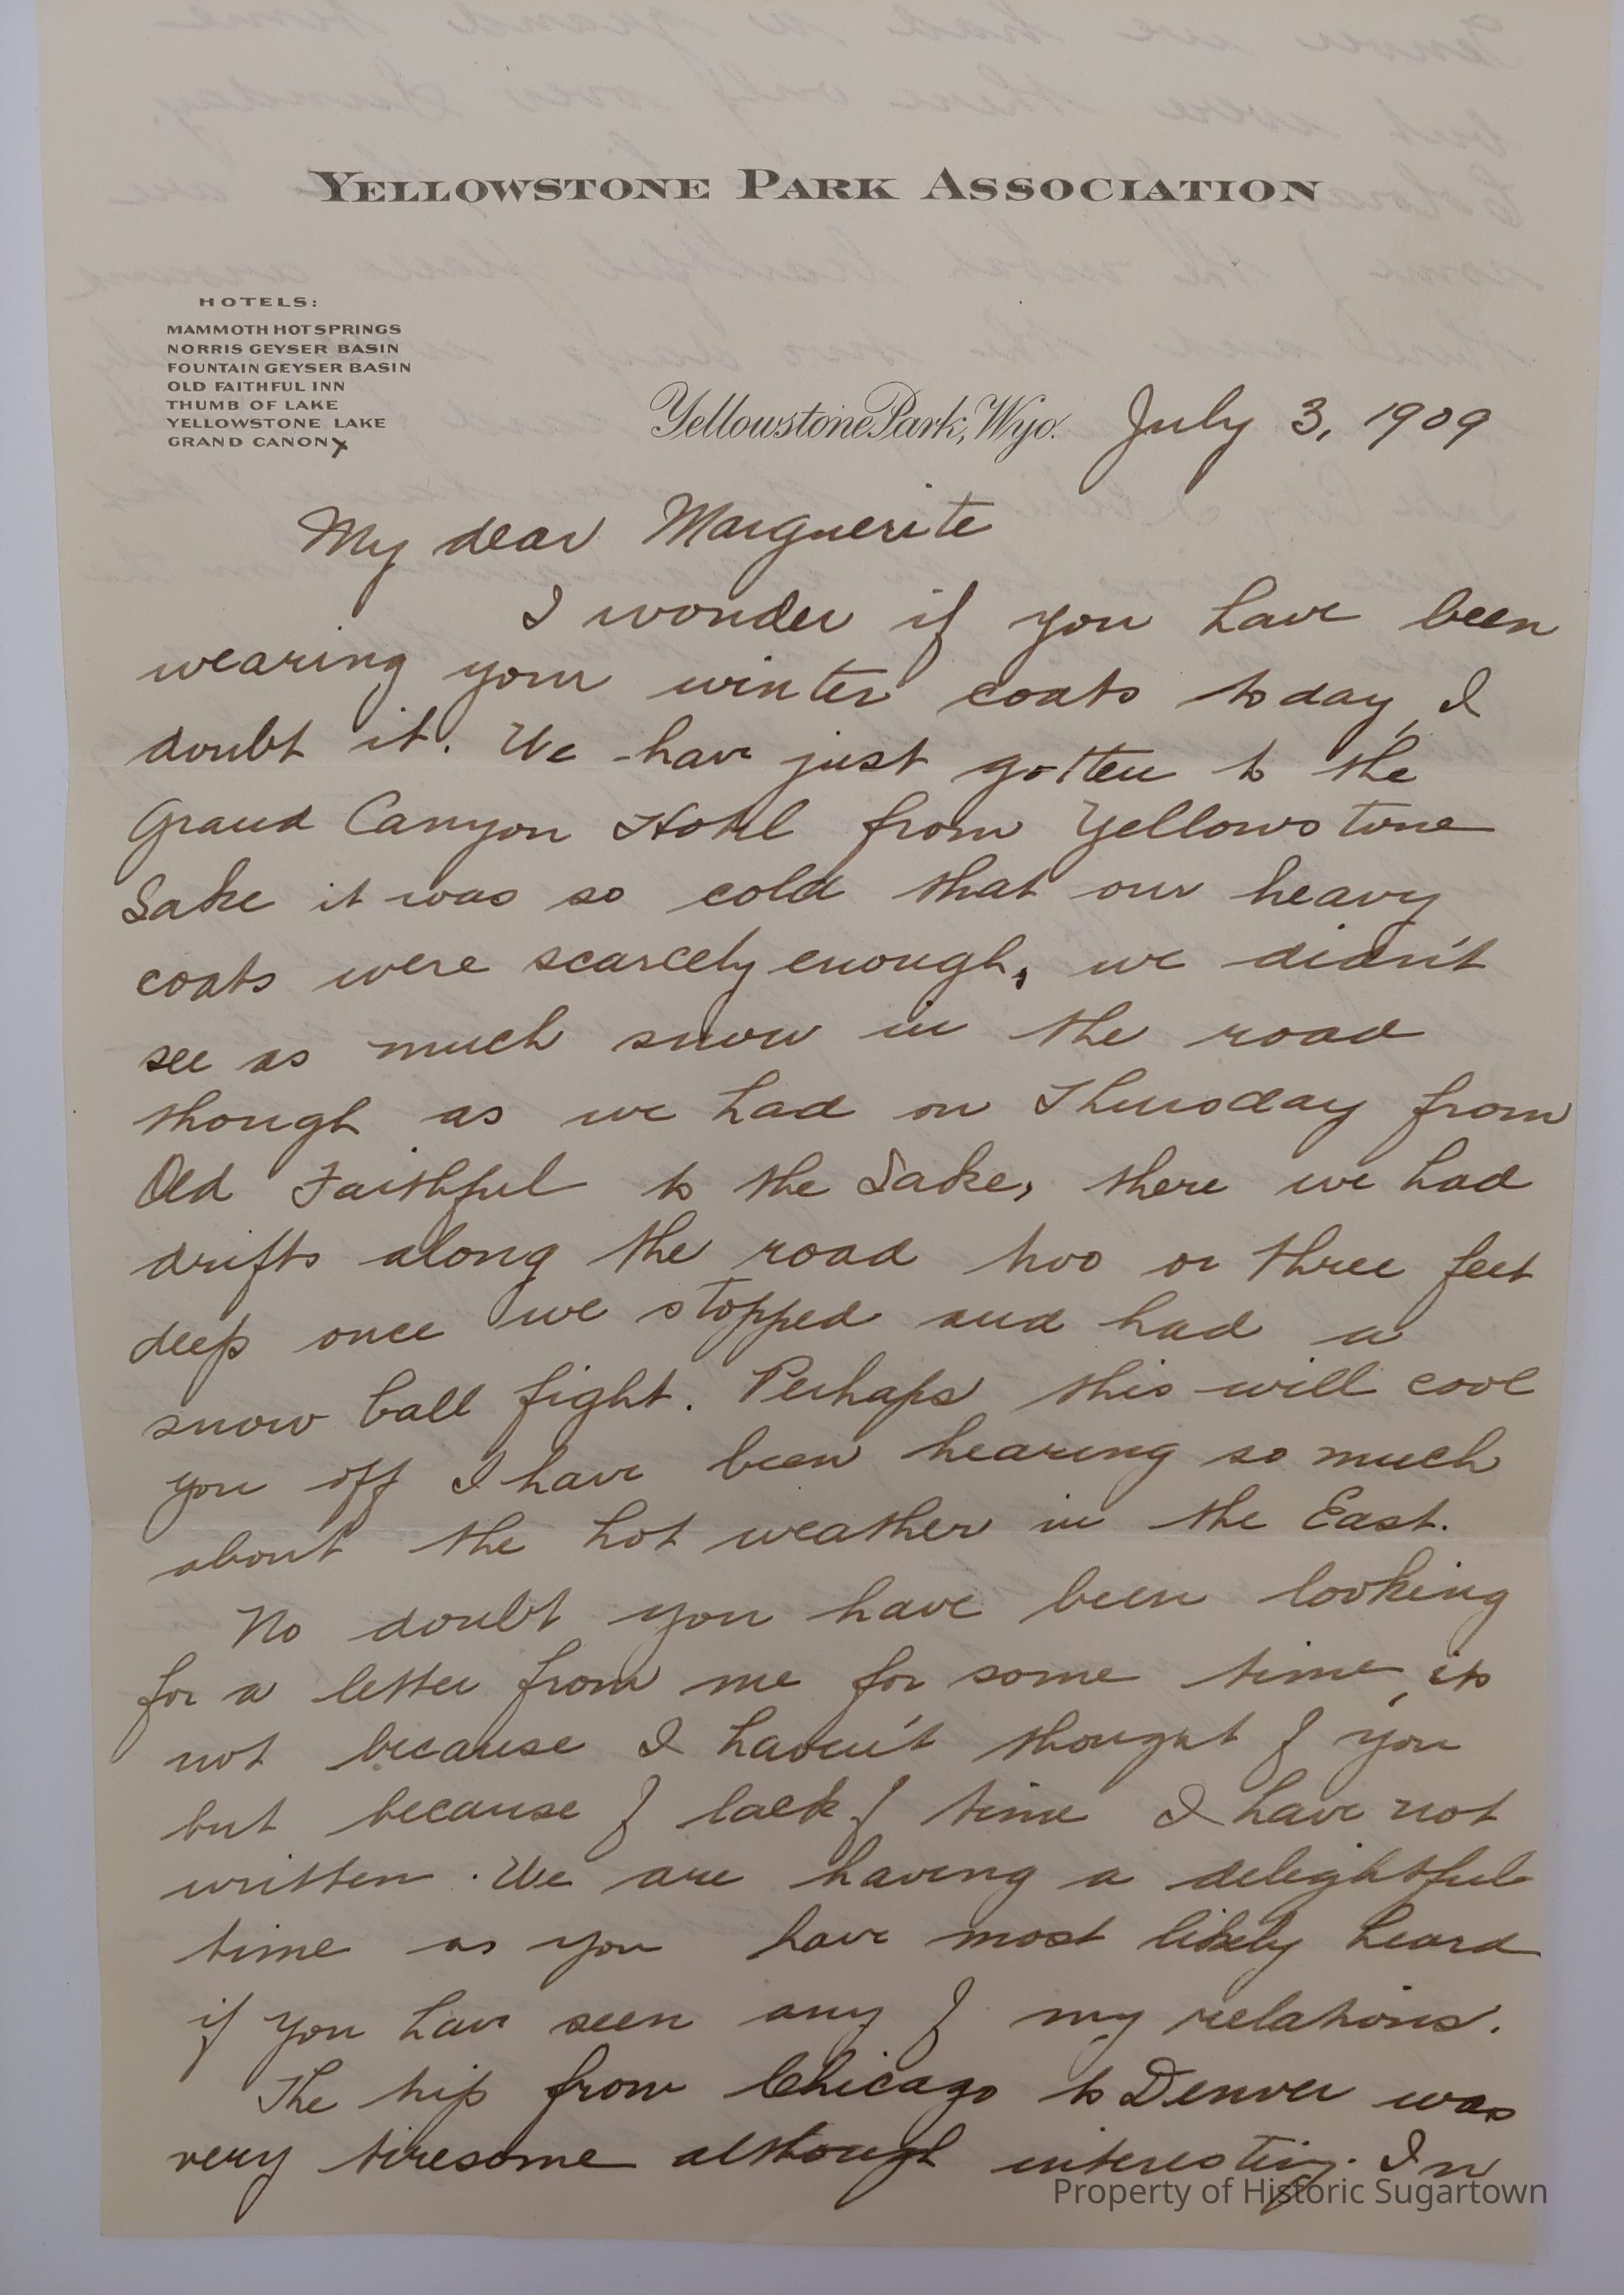 YELLOWSTONE PARK ASSOCIATION
HOTELS:
MAMMOTH HOT SPRINGS
NORRIS GEYSER BASIN
FOUNTAIN GEYSER BASIN
OLD FAITHFUL INN
THUMB OF LAKE
YELLOWSTONE LAKE
GRAND CANON x
Yellowstone Park, Wyo. July 3, 1909
My dear Marguerite
I wonder if you have been
wearing your winter coats today, I
doubt it. We have just gotten to the
Grand Canyon Hotel from Yellowstone
Lake it was so cold that our heavy
coats were scarcely enough, we didn't
see as much snow in the road
though as we had on Thursday from
Old Faithful to the Lake, there we had
drifts along the road two or three feet
deep once we stopped and had a
snow ball fight. Perhaps this will cool
you off I have been hearing so much
about the hot weather in the East.
No doubt you have been looking
for a letter from me for some time, its
not because I haven't thought of you
but because of lack of time I have not
written. We are having a delightful
time as you have most likely heard
if you have seen any of my relations.
The trip from Chicago to Denver was
very tiresome although interesting. In
Property of Historic Sugartown